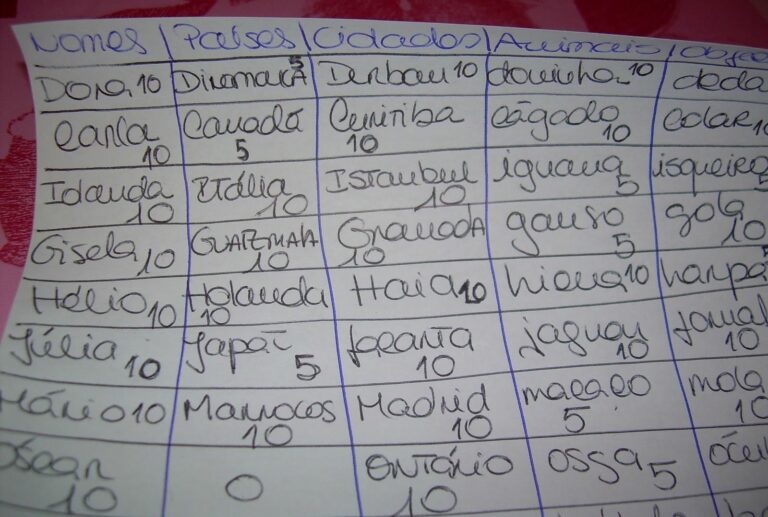 Nomes | Países | Cidades | Animais | Obje
Dora 10 Dinamarca 5 Denbau 10 doninha 10 deda
Carla 10 Canadá 5 Curitiba 10 cágado 10 colar 10
Iolanda 10 Itália 10 Istanbul 10 iguana 5 isqueiro 5
Gisela 10 GUATEMALA 10 Granada 10 ganso 5 gola 10
Hélio 10 Holanda 10 Haia 10 hiena 10 harpa 5
Júlia 10 Japão 5 Jacarta 10 jaguar 10 jornal 10
Mário 10 Marrocos 10 Madrid 10 macaco 5 mola 10
Óscar 10 0 ONTÁRIO 10 ossga 5 ócul